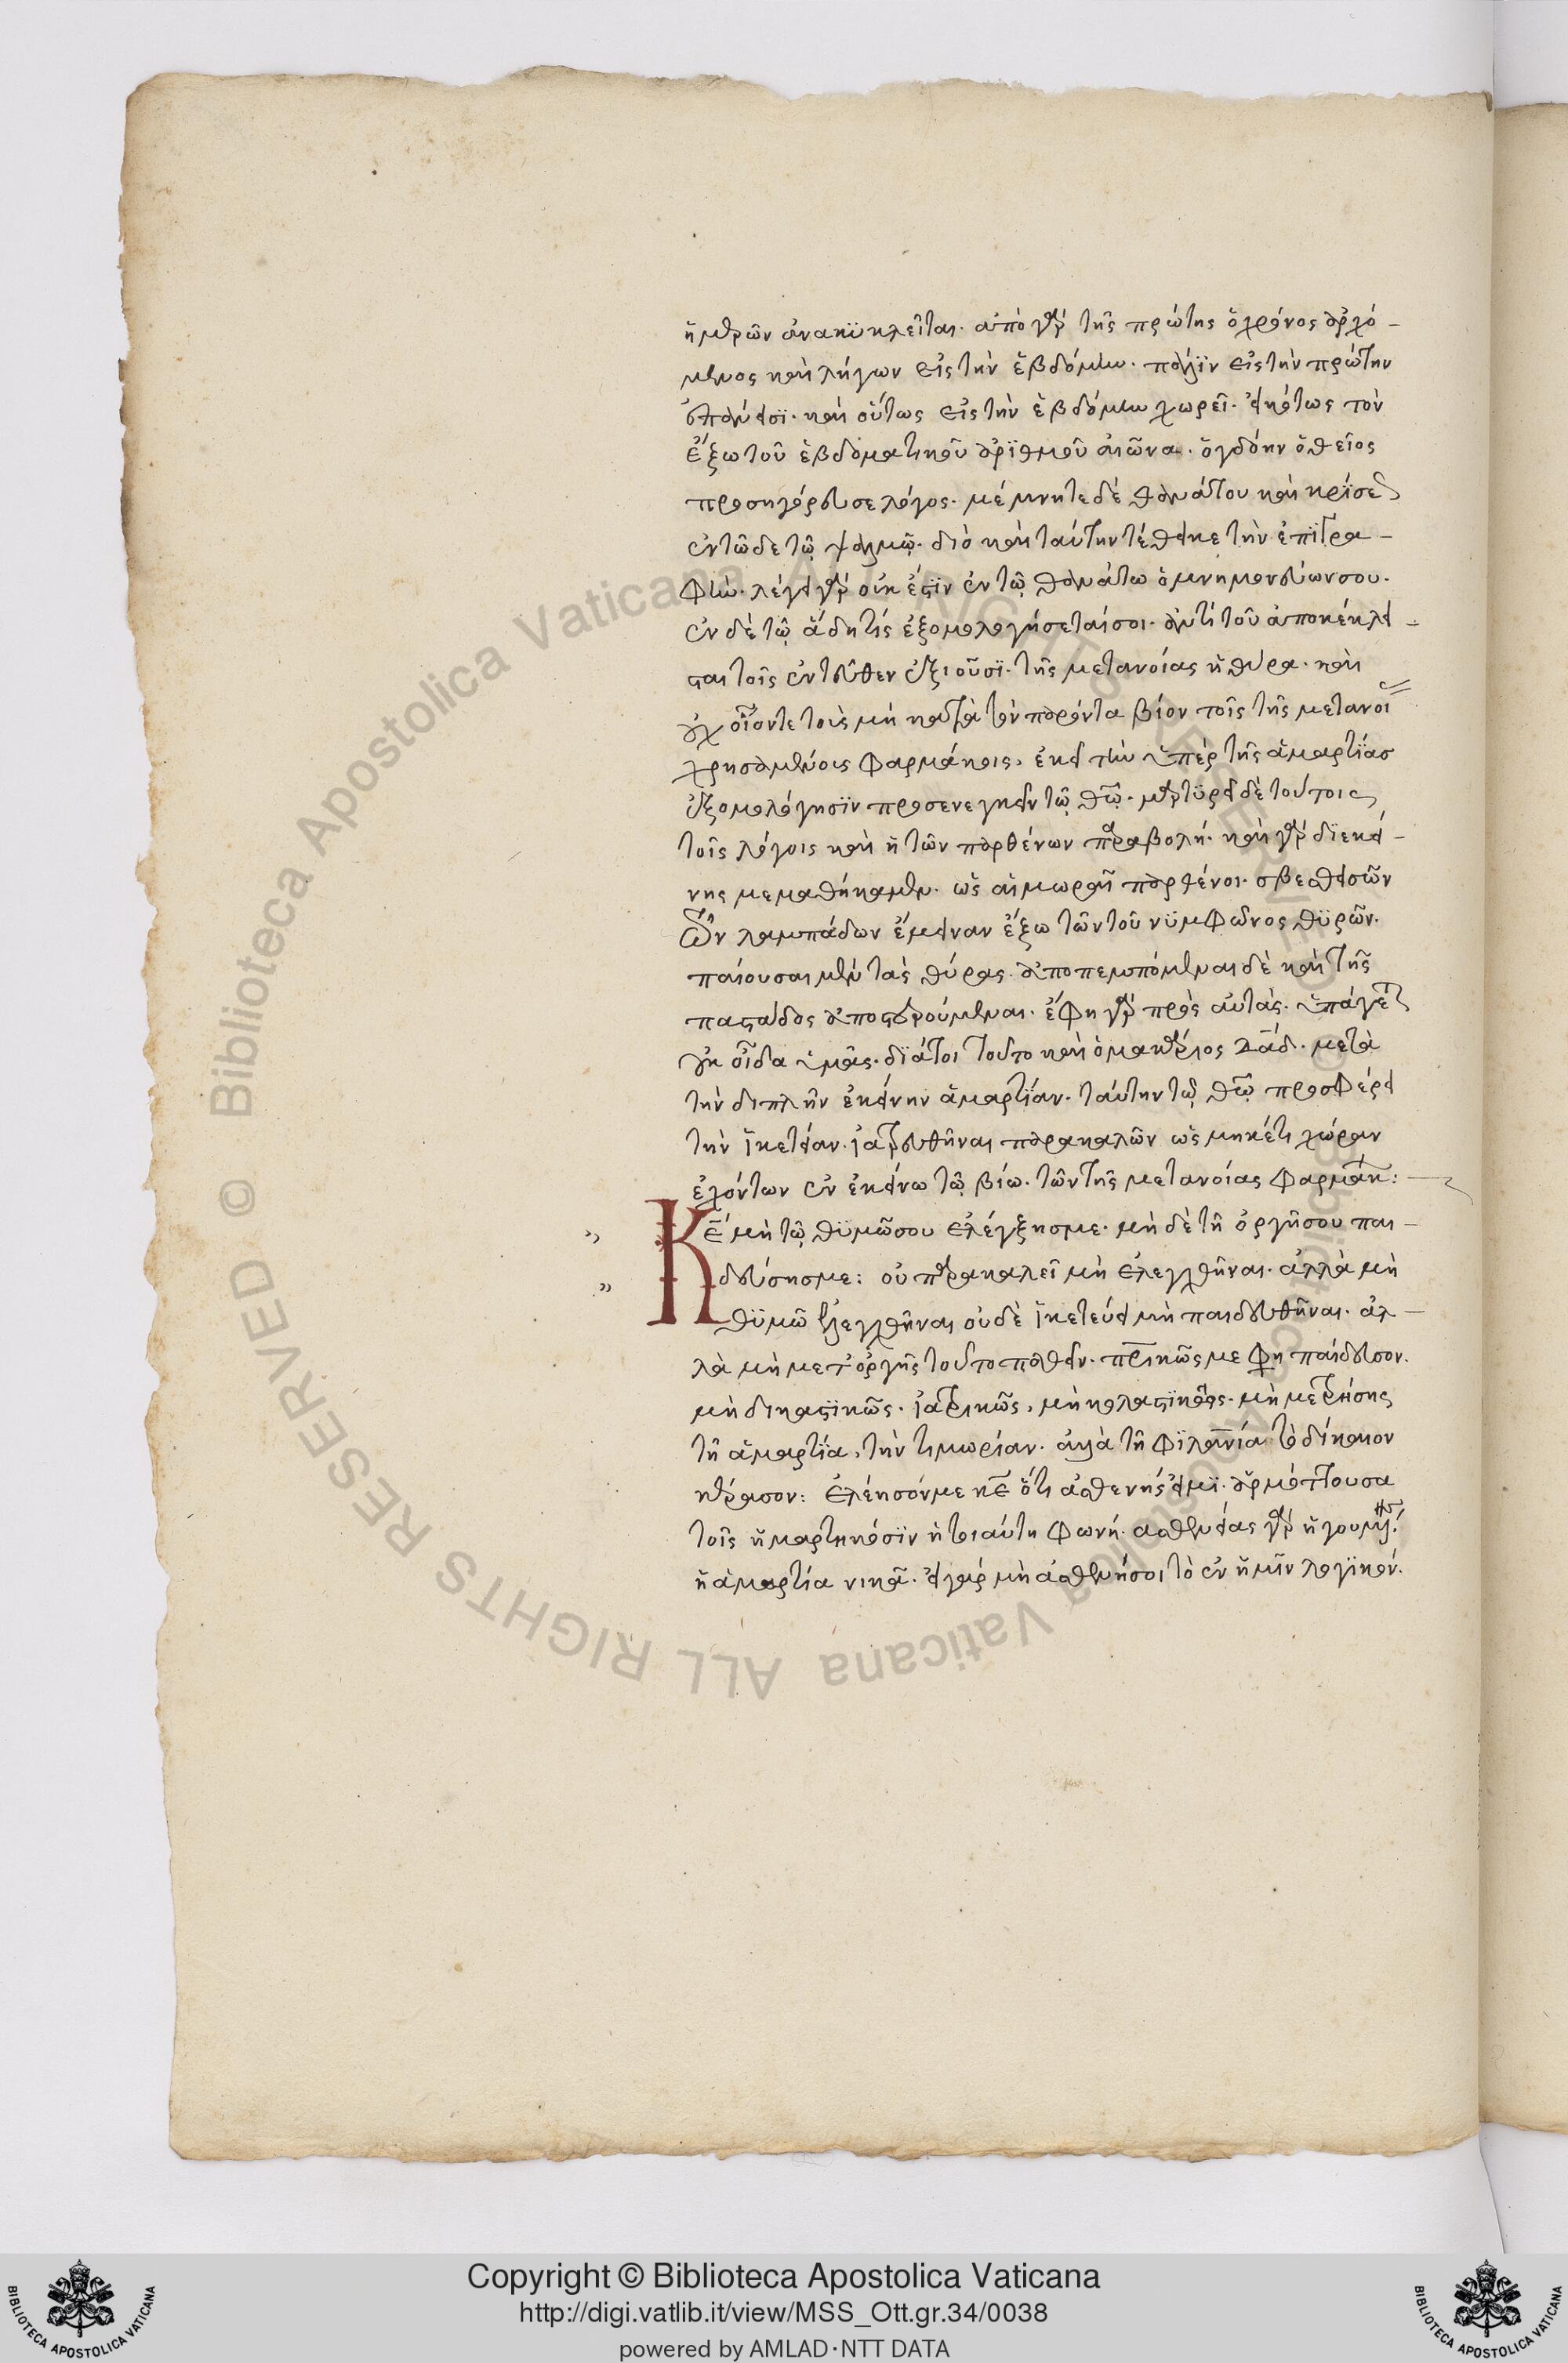 ἡμερῶν ἀνακυκλεῖται· ἀπὸ γὰρ τῆς πρώτης ὁ χρόνος ἀρχό-
μενος καὶ λήγων εἰς τὴν ἑβδόμην· πάλιν εἰς τὴν πρώτην
ἐπάνεισι· καὶ οὕτως εἰς τὴν ἑβδόμην χωρεῖ· εἰκότως τὸν
ἔξω τοῦ ἑβδοματικοῦ ἀριθμοῦ αἰῶνα· ὀγδόην ὁ θεῖος
προσηγόρευσε λόγος· μέμνητε δὲ θανάτου καὶ κρίσε
ἐν τῶδε τῷ ψαλμῷ· διὸ καὶ ταύτην τέθεικε τὴν ἐπιγρα-
φήν· λέγει γὰρ οὐκ ἔστιν ἐν τῷ θανάτω ὁ μνημονεύων σου·
ἐν δὲ τῷ ἅδη τίς ἐξομολογήσεταί σοι· ἀντὶ τοῦ ἀποκέκλει-
σται τοῖς ἐντεῦθεν ἐξιοῦσι· τῆς μετανοίας ἡ θύρα· καὶ
οὐχ οἷόν τε τοὺς μὴ κατὰ τὸν παρόντα βίον τοῖς τῆς μετανοί
χρησαμένοις φαρμάκοις, ἐκεῖ τὴν ὑπὲρ τῆς ἁμαρτίας
ἐξομολόγησιν προσενεγκεῖν τῷ θῶ· μαρτυρεῖ δὲ τούτοις
τοῖς λόγοις καὶ ἡ τῶν παρθένων παραβολή· καὶ γὰρ δι ἐκεί-
νης μεμαθήκαμεν· ὡς αἱ μωραὶ παρθένοι· σβεσθεισῶν
τῶν λαμπάδων ἔμειναν ἔξω τῶν τοῦ νυμφῶνος θυρῶν·
παίουσαι μὲν τὰς θύρας· ἀποπεμπόμεναι δὲ καὶ τῆς
παστάδος ἀποστερούμεναι· ἔφη γὰρ πρὸς αὐτὰς· ὑπάγετ
οὐκ οἶδα ὑμᾶς· διάτοι τοῦτο καὶ ὁ μακάριος δαδ· μετὰ
τὴν διπλῆν ἐκείνην ἁμαρτίαν· ταύτην τῷ θῶ προσφέρει
τὴν ἱκετείαν· ἰατρευθῆναι παρακαλῶν ὡς μηκέτι χώραν
ἐχόντων ἐν ἐκείνω τῷ βίω· τῶν τῆς μετανοίας φαρμάκ:
» Κε μὴ τῷ θυμῶ σου ἐλέγξης με· μὴ δὲ τῇ ὀργῆ σου παι-
» δεύσης με: οὐ παρακαλεῖ μὴ ἐλεγχθῆναι· ἀλλὰ μὴ
θυμῶ ἐλεγχθῆναι οὐδὲ ἱκετεύει μὴ παιδευθῆναι· ἀλ-
λὰ μὴ μετ ὀργῆς τοῦτο παθεῖν· πρικῶς με φη παίδευσον·
μὴ δικαστικῶς· ἰατρικῶς, μὴ κολαστικῶς· μὴ μετρήσης
τῇ ἁμαρτία, τὴν τιμωρίαν· ἀλλὰ τῇ φιλανία τὸ δίκαιον
κέρασον: ἐλέησόν με κε ὅτι ἀσθενής εἰμι· ἁρμόττουσα
τοῖς ἡμαρτηκόσιν ἡ τοιαύτη φωνή· ἀσθενείας γὰρ ἡγουμένης·
ἡ ἁμαρτία νικᾶ· εἰ γὰρ μὴ ἀσθενήσοι τὸ ἐν ἡμῖν λογικόν·
Copyright © Biblioteca Apostolica Vaticana
http://digi.vatlib.it/view/MSS_Ott.gr.34/0038
powered by AMLAD·NTT DATA
BIBLIOTECA APOSTOLICA VATICANA
BIBLIOTECA APOSTOLICA VATICANA
© Biblioteca Apostolica Vaticana ALL RIGHTS RESERVED
© Biblioteca Apostolica Vaticana ALL RIGHTS RESERVED